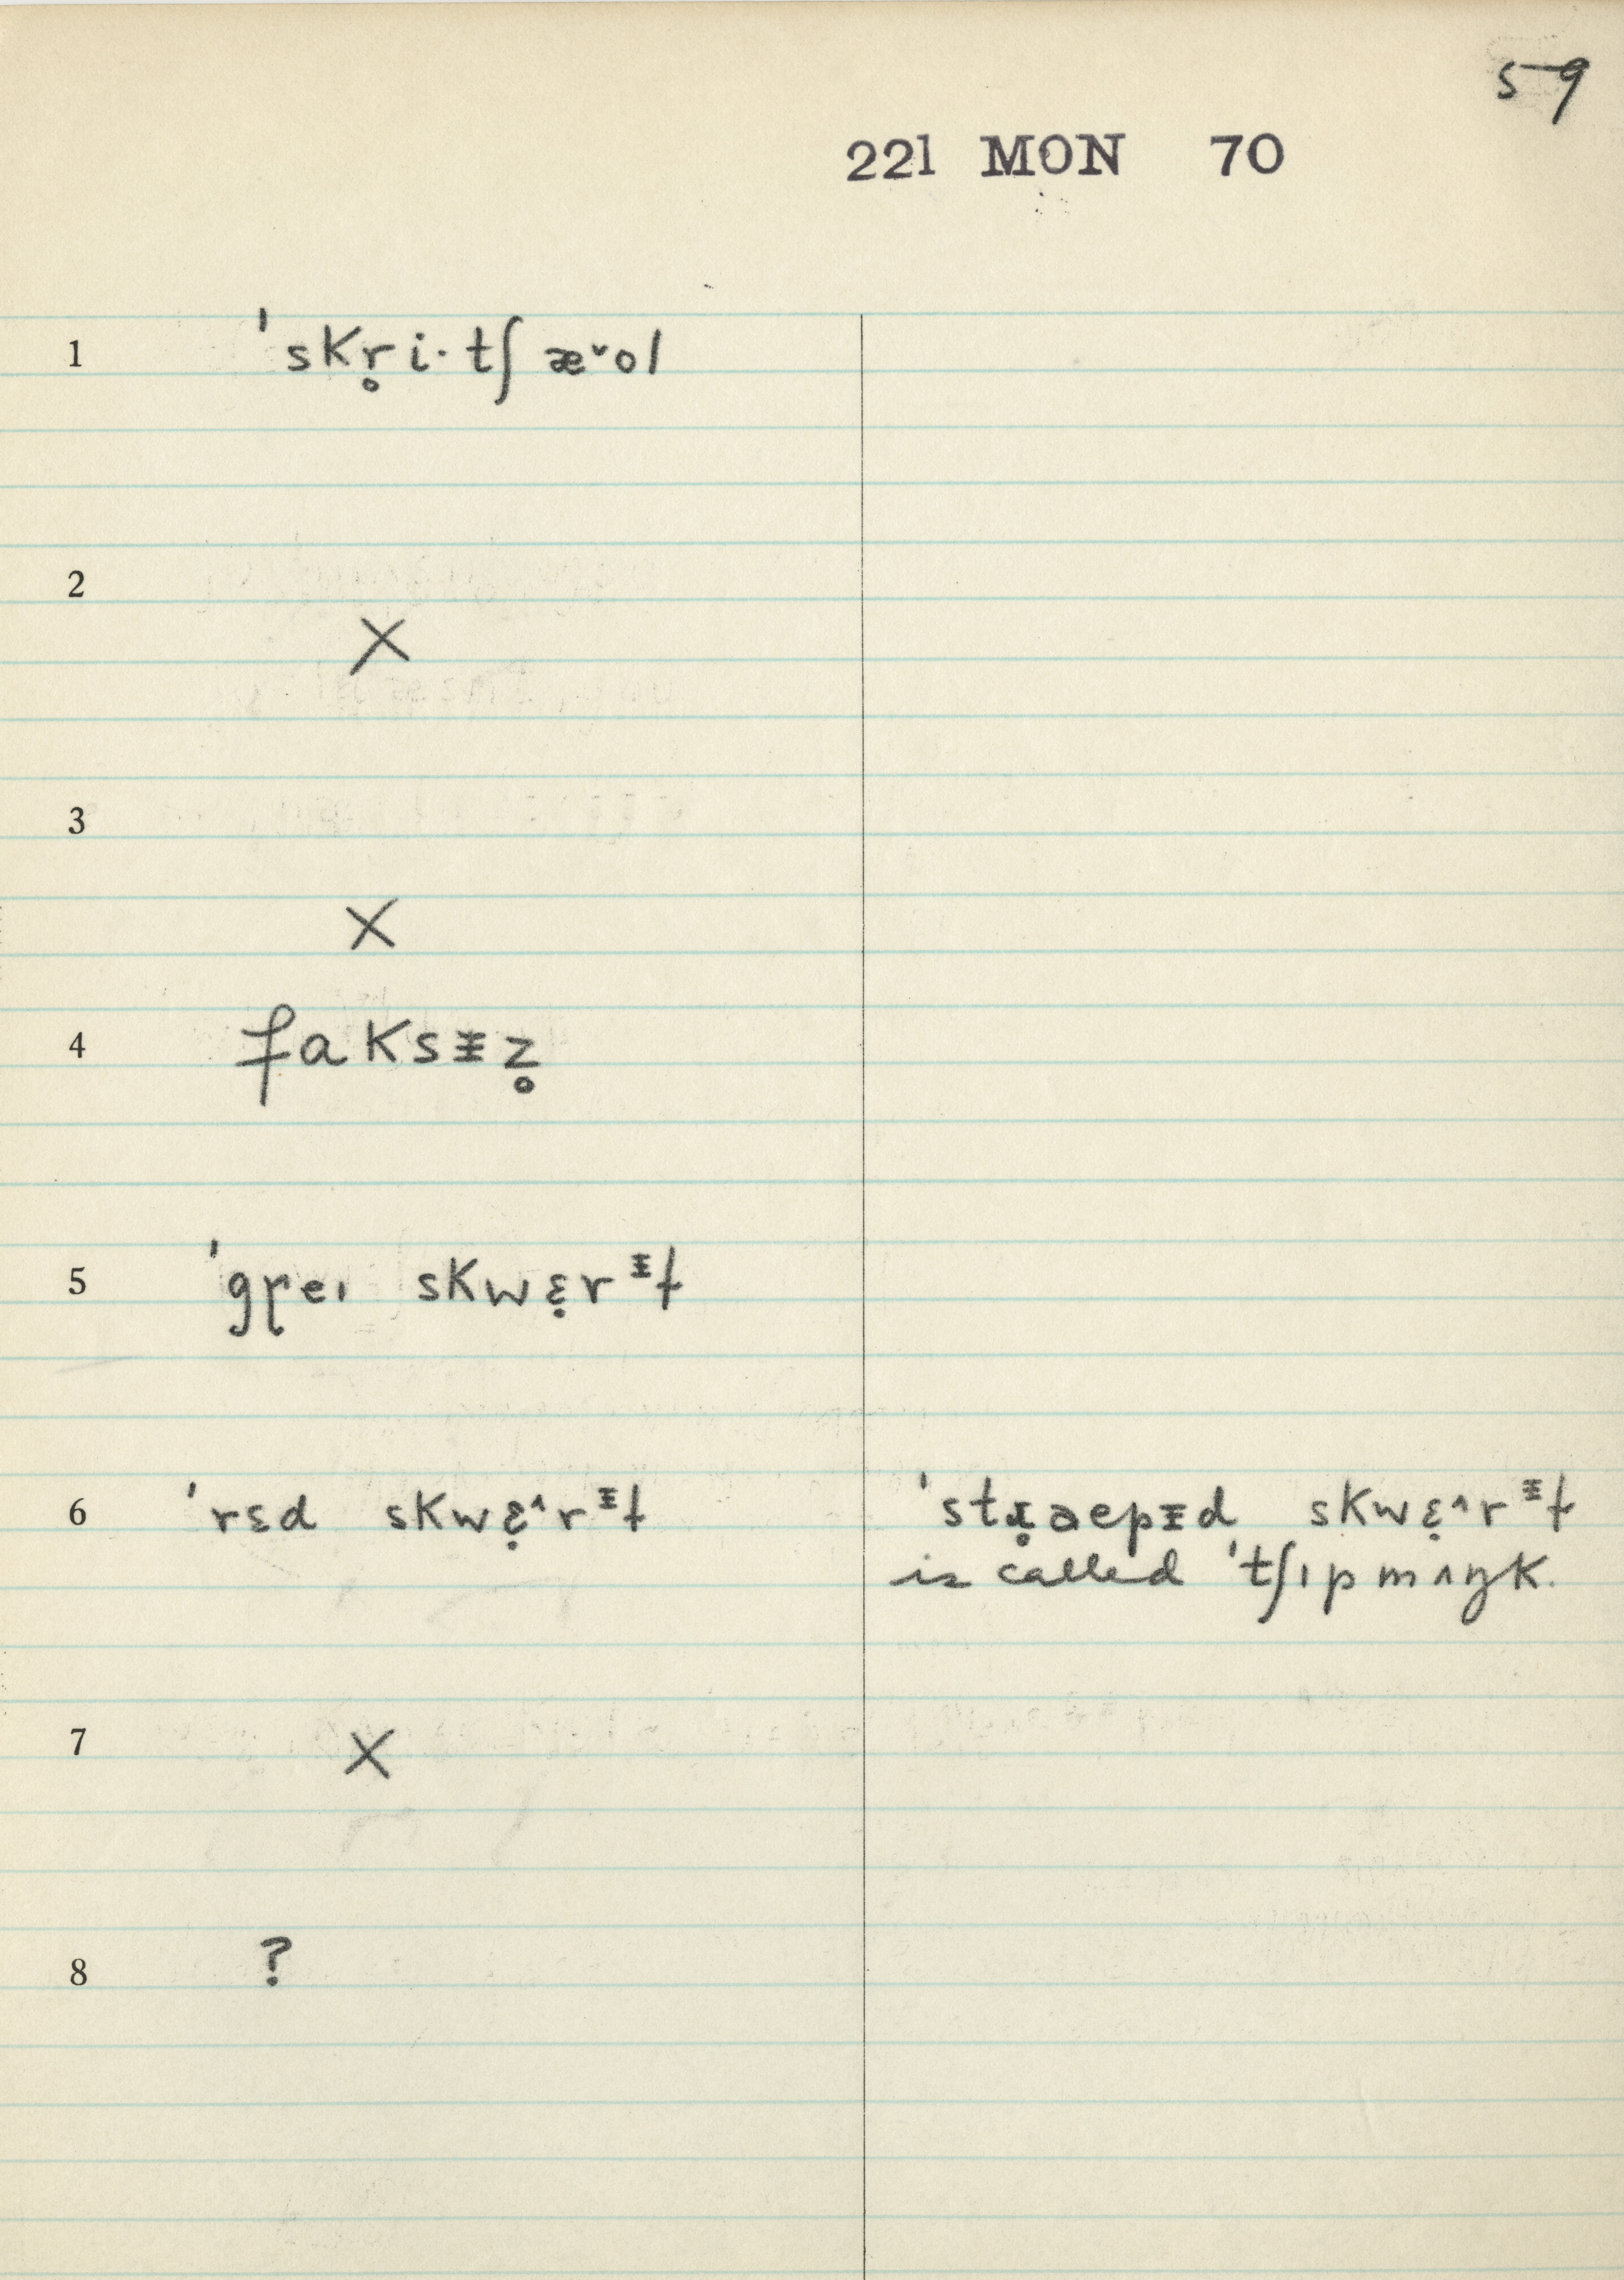 59
221 MON 70
1 ˈskr̥i·tʃæ˅ol
2
X
3
X
4 faksᵻz̥
5 ˈgɽeɪ skwɛ̣rᵻɫ
6 ˈrɛd skwɛ̣^rᵻɫ
ˈstɹ̣aepɪd skwɛ̣^rᵻɫ
is called ˈtʃɪpmʌŋk.
7 X
8 ?